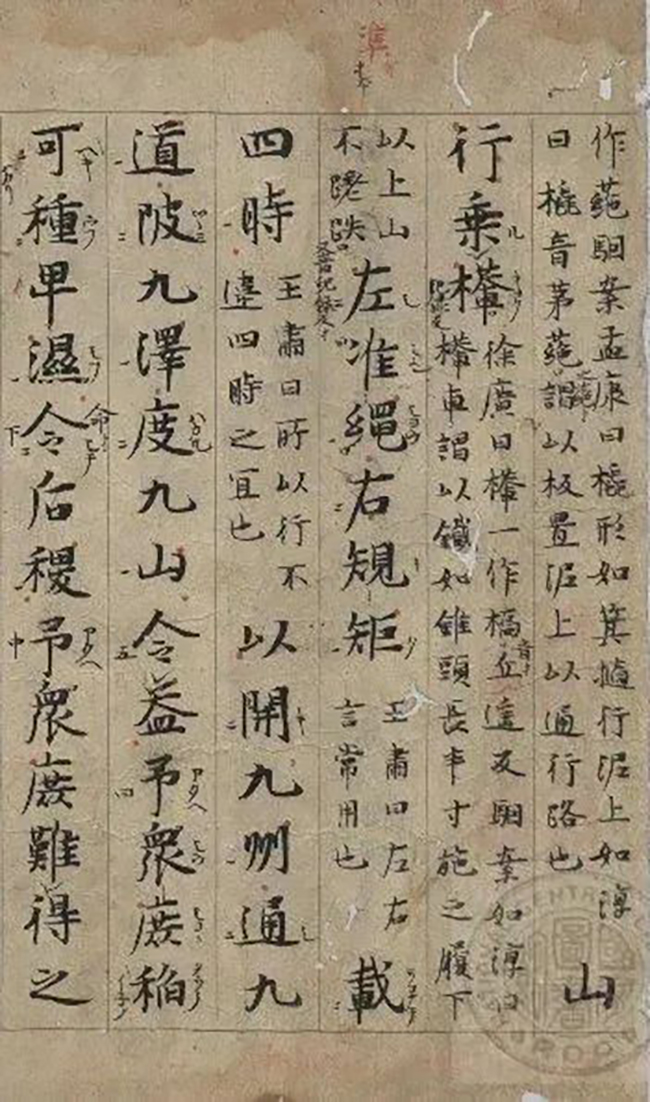 準
作蕝駰案孟康曰橇形如箕擿行泥上如淳
曰橇音茅蕝謂以板置泥上以通行路也
山
行乗檋
徐廣曰檋一作橋音丘遙反駰案如淳曰
檋車謂以鐵如錐頭長半寸施之履下
以上山
不蹉跌
左准繩右規矩
王肅曰左右
言常用也
載
四時
王肅曰所以行不
違四時之宜也
以開九州通九
道陂九澤度九山令益予衆庶稻
可種卑濕令后稷予衆庶難得之